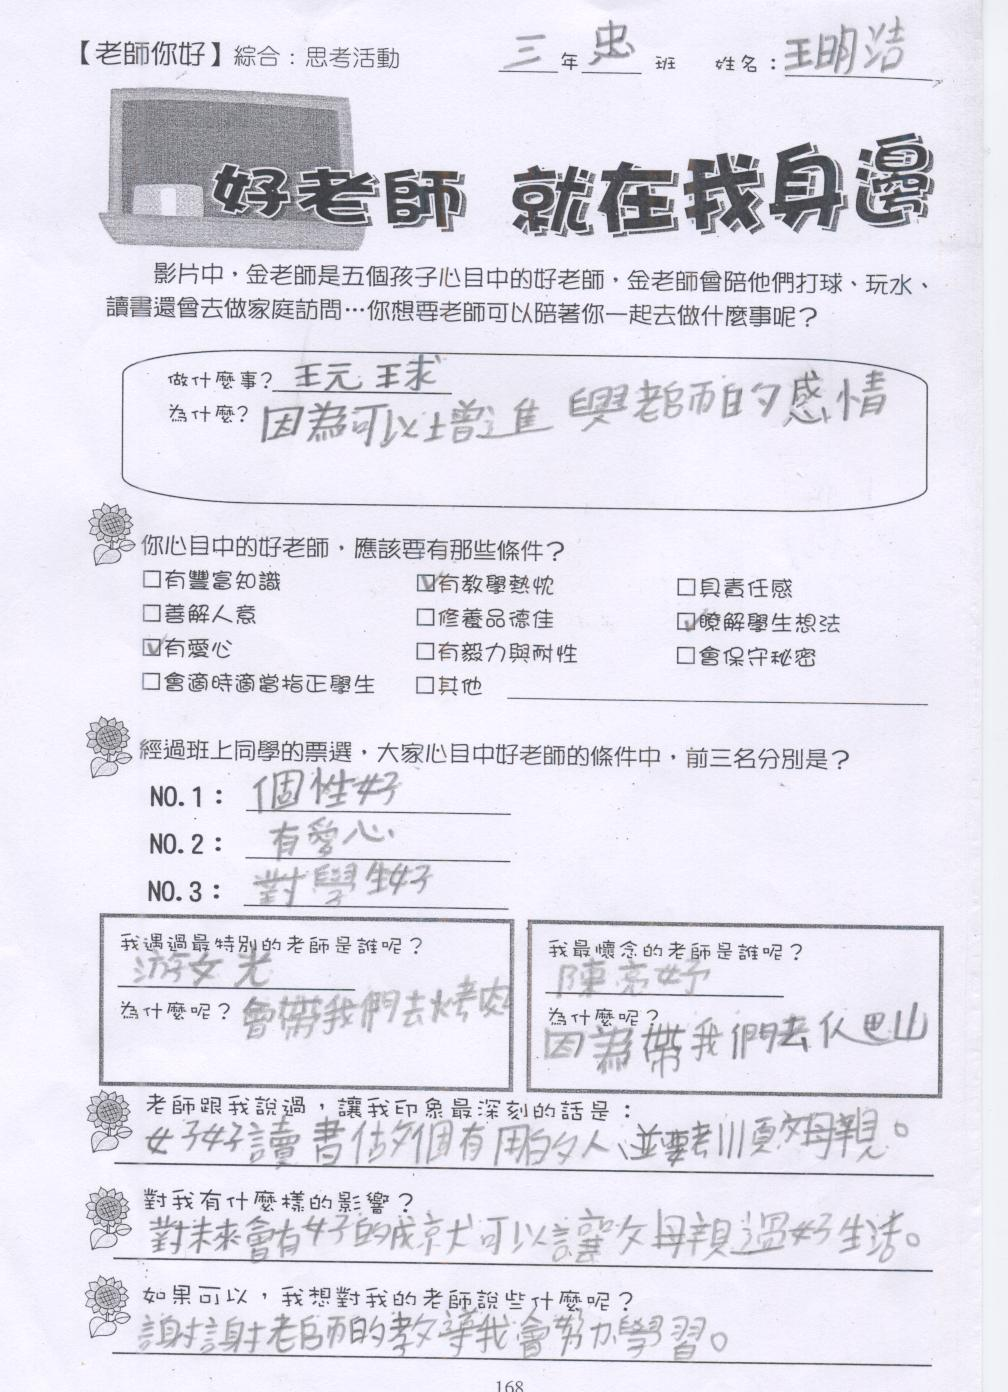 【老師你好】綜合：思考活動 三年忠班 姓名：王明浩
好老師 就在我身邊
影片中，金老師是五個孩子心目中的好老師，金老師曾陪他們打球、玩水、
讀書還曾去做家庭訪問…你想要老師可以陪著你一起去做什麼事呢？
做什麼事？玩球
為什麼？因為可以增進與老師的感情
你心目中的好老師，應該要有那些條件？
□有豐富知識 ☑有教學熱忱 □具責任感
□善解人意 □修養品德佳 ☑瞭解學生想法
☑有愛心 □有毅力與耐性 □會保守秘密
□會適時適當指正學生 □其他
經過班上同學的票選，大家心目中好老師的條件中，前三名分別是？
NO.1：個性好
NO.2：有愛心
NO.3：對學生好
我遇過最特別的老師是誰呢？
游文光
為什麼呢？會帶我們去烤肉
我最懷念的老師是誰呢？
陳亮妤
為什麼呢？
因為帶我們去仈巴山
老師跟我說過，讓我印象最深刻的話是：
好好讀書做個有用的人、並要孝順父母親。
對我有什麼樣的影響？
對未來會有好的成就可以讓父母親過好生活。
如果可以，我想對我的老師說些什麼呢？
謝謝老師的教導我會努力學習。
168